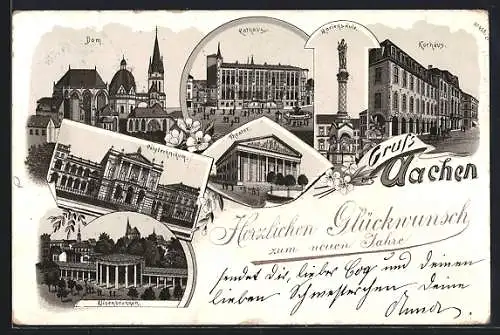 Dom.
Rathaus.
Mariensäule.
Kurhaus.
Polytechnikum.
Theater.
Gruß
Aachen
Elisenbrunnen.
Herzlichen Glückwunsch
zum neuen Jahre
sendet Dir, lieber und deinem
lieben Schwesterchen, Deine
Anna.